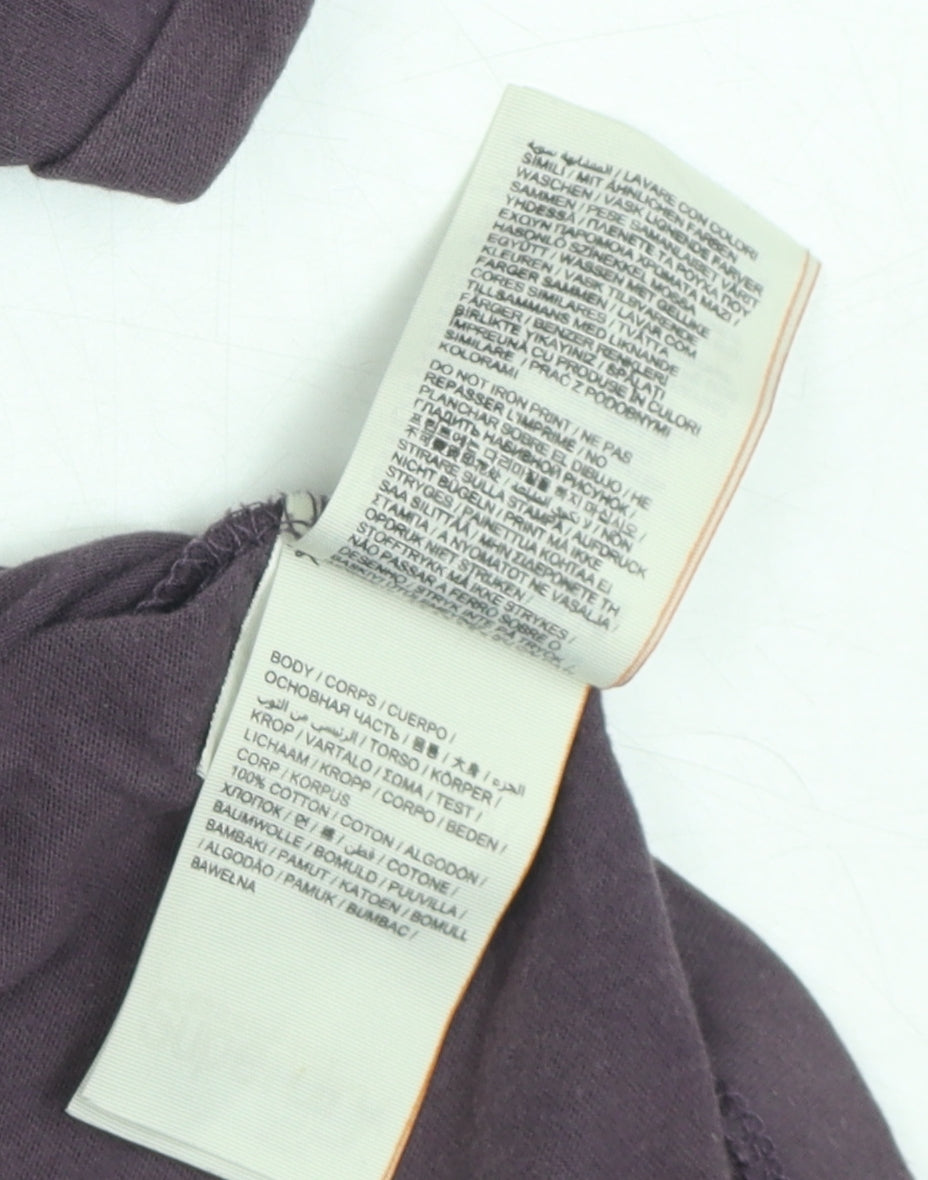 المتشابهة سوية / LAVARE CON COLORI
SIMILI / MIT ÄHNLICHEN FARBEN
WASCHEN / VASK LIGNENDE FARVER
SAMMEN / PESE SAMANLAISET VÄRIT
YHDESSÄ / ΠΛΕΝΕΤΕ ΤΑ ΡΟΥΧΑ ΠΟΥ
ΕΧΟΥΝ ΠΑΡΟΜΟΙΑ ΧΡΩΜΑΤΑ ΜΑΖΙ /
HASONLÓ SZÍNEKKEL MOSSA
EGYÜTT / WASSEN MET GELIJKE
KLEUREN / VASK
FARGER SAMMEN / LAVAR COM
CORES SIMILARES / TVÄTTA
TILLSAMMANS MED LIKNANDE
FÄRGER / BENZER RENKLERI
BIRLIKTE YIKAYINIZ / SPĂLAȚI
ÎMPREUNĂ CU PRODUSE ÎN CULORI
SIMILARE / PRAĆ Z PODOBNYMI
KOLORAMI
DO NOT IRON PRINT / NE PAS
REPASSER L'IMPRIMÉ / NO
PLANCHAR SOBRE EL DIBUJO / НЕ
ГЛАДИТЬ НАБИВНОЙ РИСУНОК /
/ NON
STIRARE SULLA STAMPA / AUFDRUCK
NICHT BÜGELN / PRINT MÅ IKKE
STRYGES / PAINETTUA KOHTAA EI
SAA SILITTÄÄ / ΜΗΝ ΣΙΔΕΡΩΝΕΤΕ ΤΗ
ΣΤΑΜΠΑ / A NYOMATOT NE VASALJA /
OPDRUK NIET STRIJKEN /
STOFFTRYKK MÅ IKKE STRYKES /
NÃO PASSAR A FERRO SOBRE O
DESENHO / STRYK INTE PÅ TRYCK /
BODY / CORPS / CUERPO /
ОСНОВНАЯ ЧАСТЬ / 大身 / الجزء
الرئيسي من الثوب / TORSO / KÖRPER /
KROP / VARTALO / ΣΩΜΑ / TEST /
LICHAAM / KROPP / CORPO / BEDEN /
CORP / KORPUS
100% COTTON / COTON / ALGODÓN /
ХЛОПОК / 면 / 棉 / قطن / COTONE /
BAUMWOLLE / BOMULD / PUUVILLA /
BAMBAKI / PAMUT / KATOEN / BOMULL
/ ALGODÃO / PAMUK / BUMBAC /
BAWEŁNA